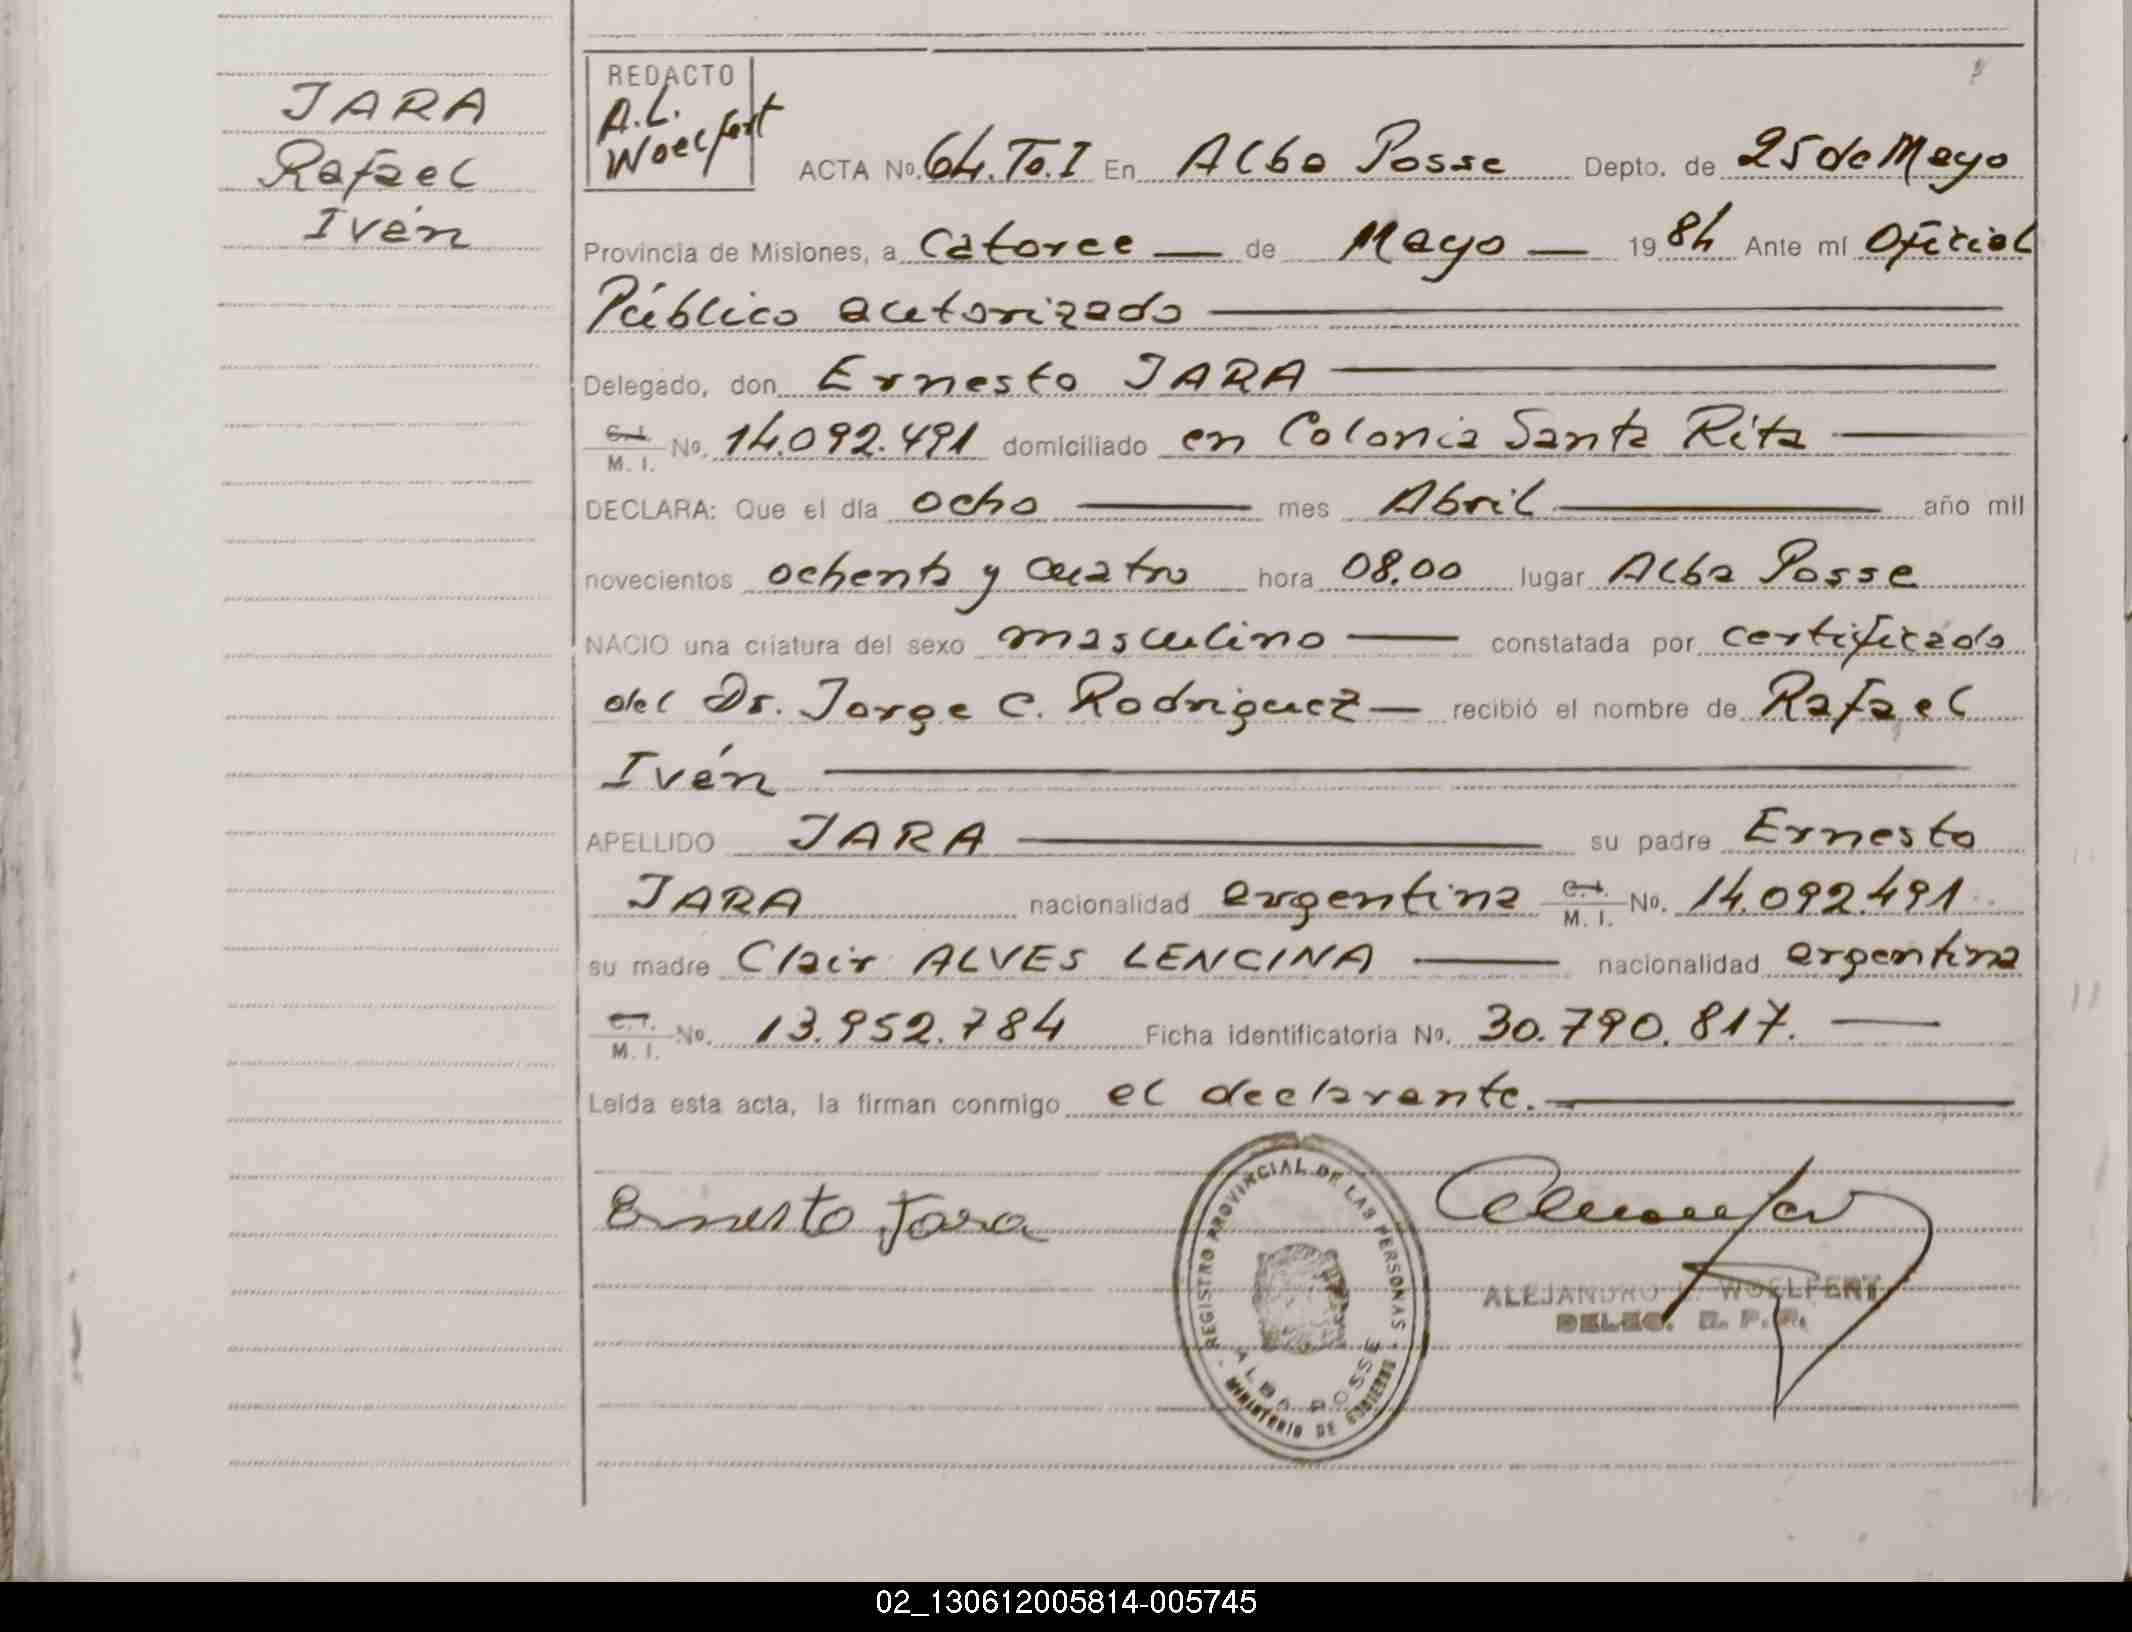 JARA
Rafael
Iván
REDACTO
A.L.
Woelfert
ACTA No. 64. To. I En Alba Posse Depto. de 25 de Mayo
Provincia de Misiones, a Catorce — de Mayo — 19 84 Ante mí Oficial
Público autorizado
Delegado, don Ernesto JARA
C.I. M. I. No. 14.092.491 domiciliado en Colonia Santa Rita
DECLARA: Que el día ocho mes Abril año mil
novecientos ochenta y cuatro hora 08.00 lugar Alba Posse
NACIO una criatura del sexo masculino constatada por certificado
del Dr. Jorge C. Rodriguez — recibió el nombre de Rafael
Iván
APELLIDO JARA su padre Ernesto
JARA nacionalidad argentina C.I. M. I. No. 14.092.491
su madre Clair ALVES LENCINA nacionalidad argentina
C.I. M. I. No. 13.952.784 Ficha identificatoria No. 30.790.817.
Leída esta acta, la firman conmigo el declarante.
Ernesto Jara
REGISTRO PROVINCIAL DE LAS PERSONAS
ALBA POSSE
MINISTERIO DE GOBIERNO
ALEJANDRO L. WOELFERT
DELEG. R. P. P.
02_130612005814-005745